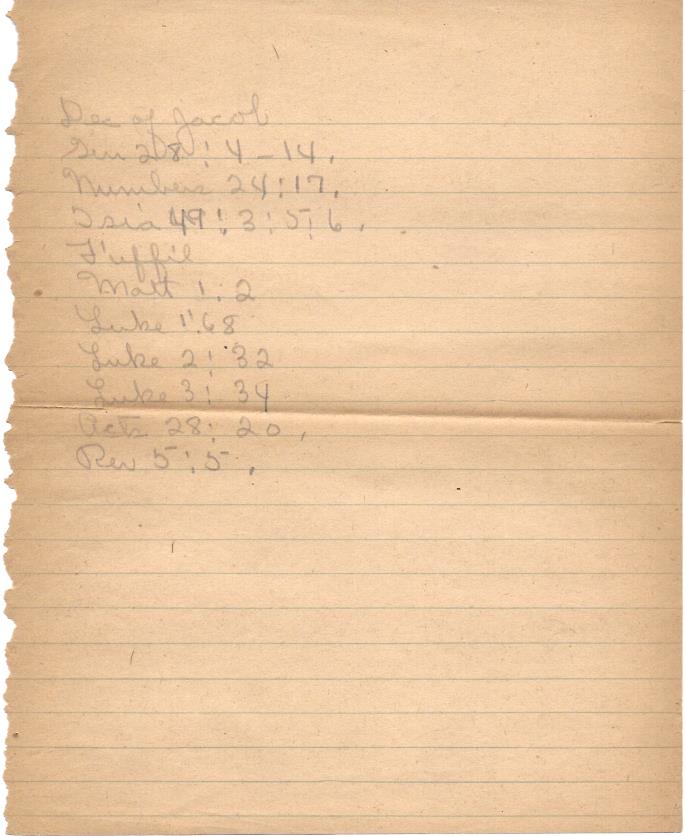 Dec of Jacob
Gen 28: 4 - 14.
Numbers 24:17.
Isia 49: 3: 5: 6.
Fuffil
Matt 1: 2
Luke 1:68
Luke 2: 32
Luke 3: 34
Acts 28: 20.
Rev 5: 5.